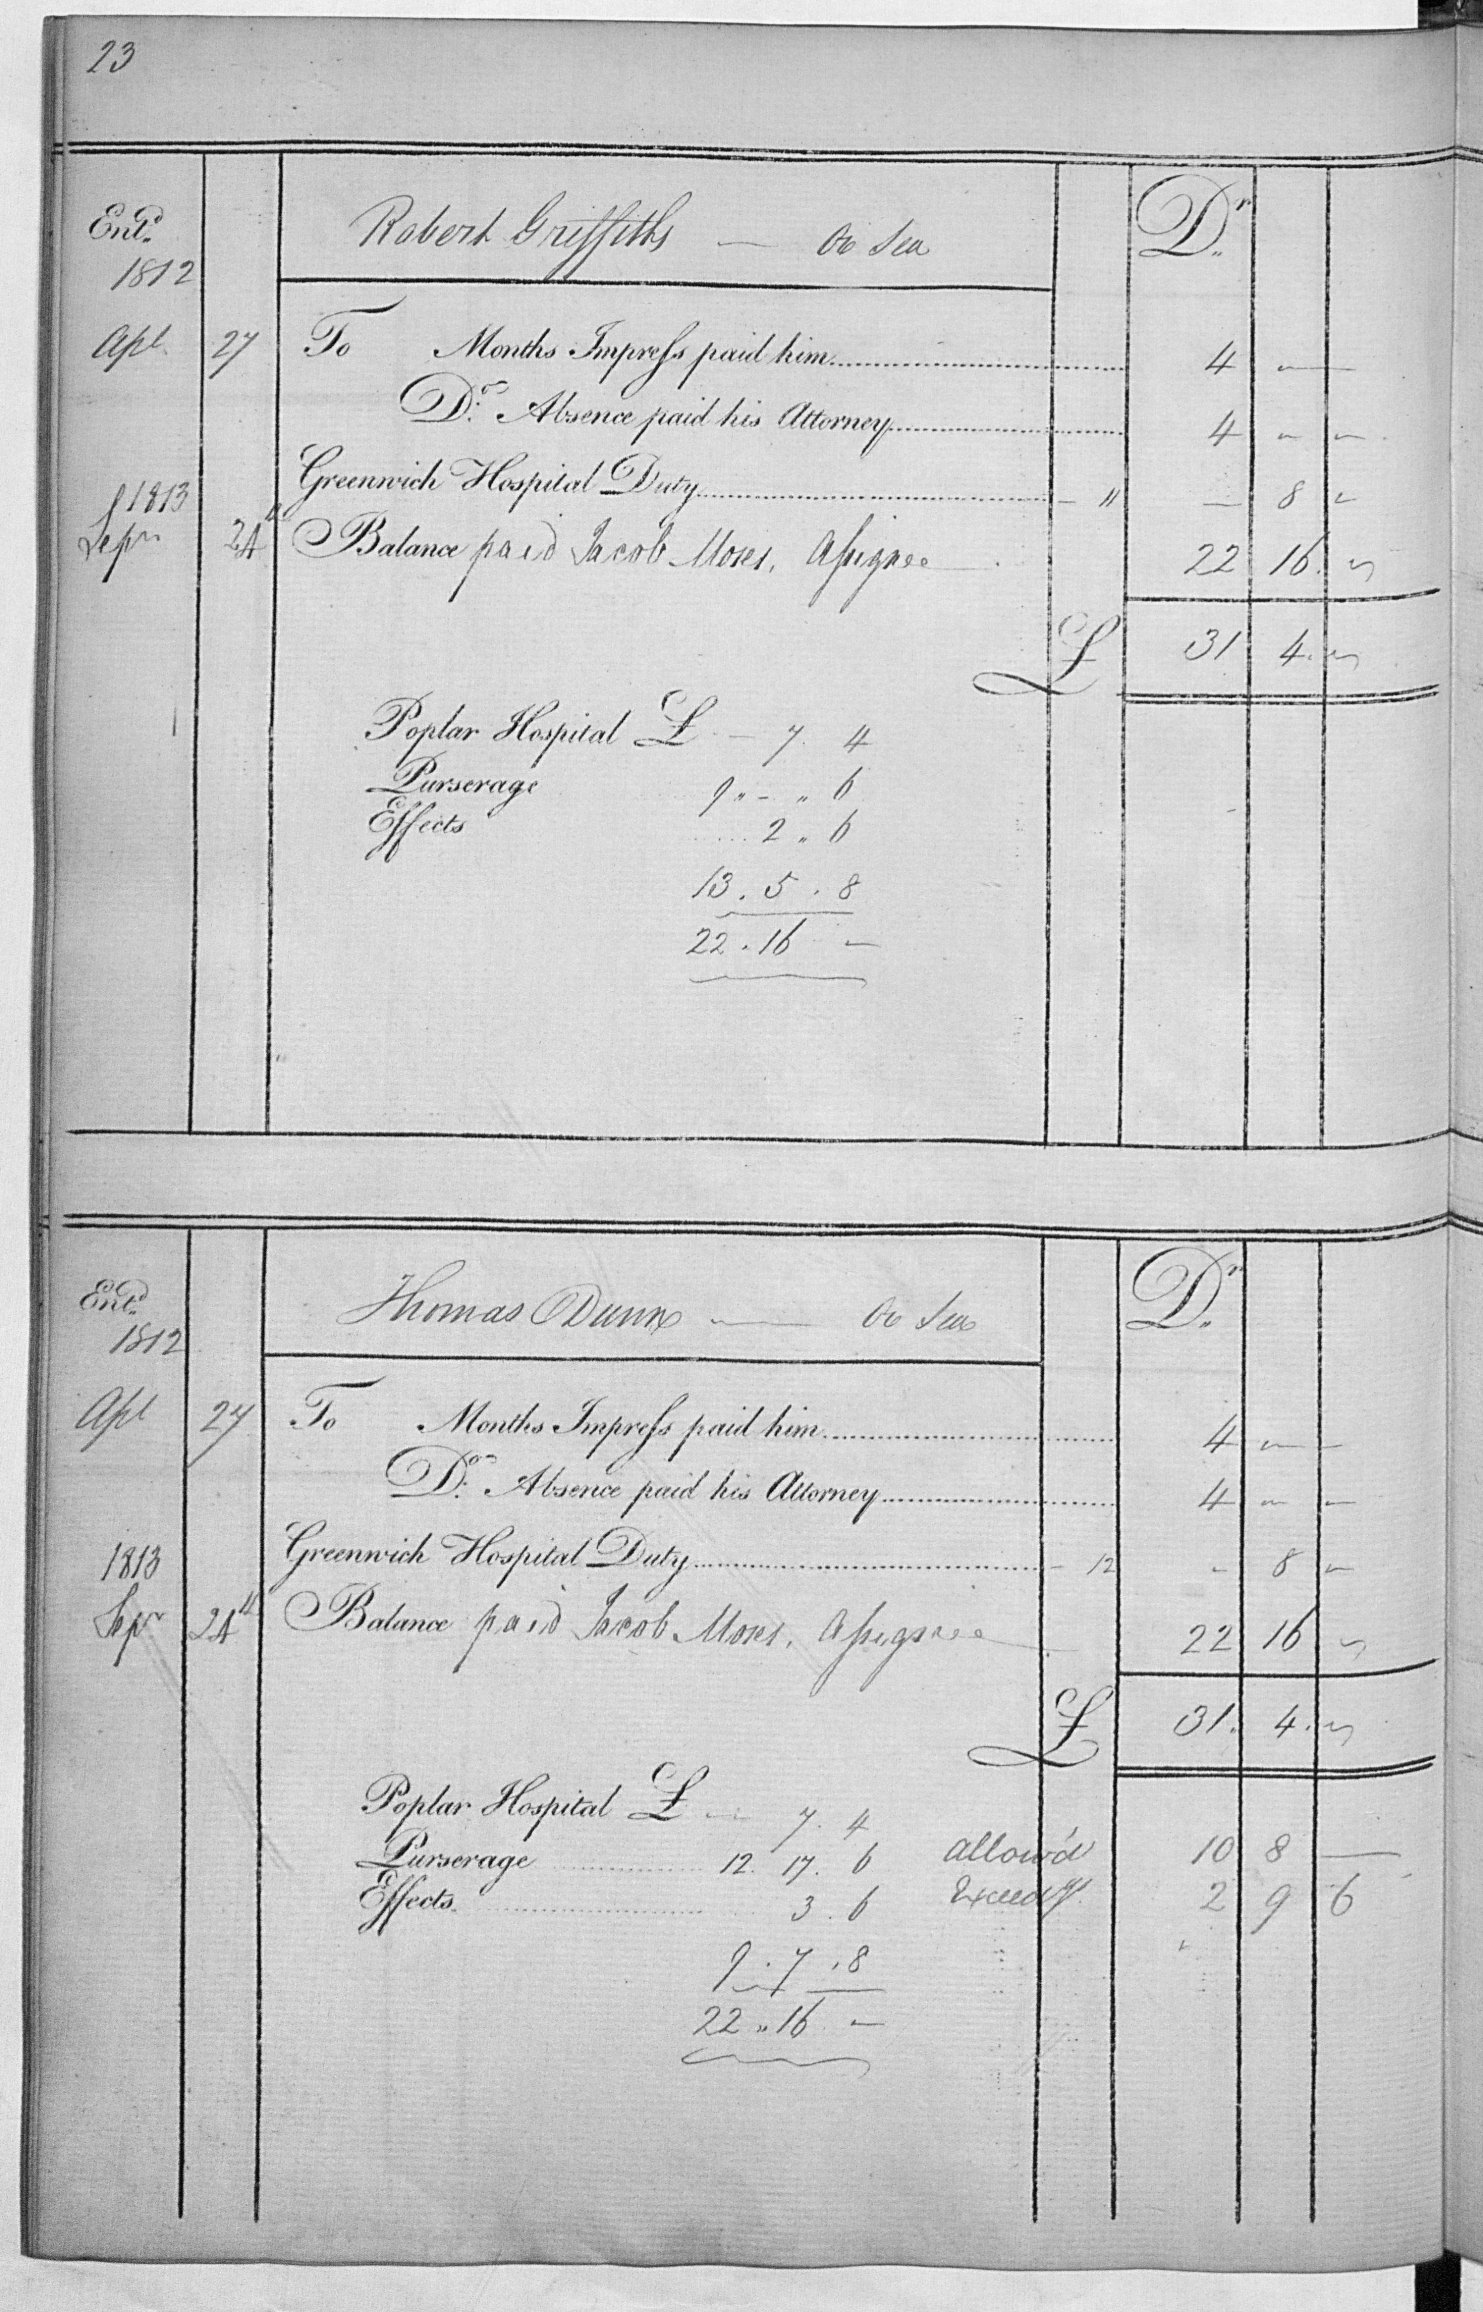 23
Ent.d
1812
Robert Griffiths — Or Sea
Dr.
Apl. 27 To Months Impress paid him 4 — —
Do. Absence paid his Attorney 4 — —
Greenwich Hospital Duty — " — 8 —
1813
Sepr 24 Balance paid Jacob Moses, Assignee 22 16 —
£ 31 4 —
Poplar Hospital £ — 7. 4
Purserage 9 " - " 6
Effects 2 " 6
13. 5. 8
22. 16 —
Ent.d
1812
Thomas Dunn — Or Sea
Dr.
Apl 27 To Months Impress paid him 4 — —
Do. Absence paid his Attorney 4 — —
Greenwich Hospital Duty — 12 - 8 —
1813
Sepr 24 Balance paid Jacob Moses, Assignee 22 16 —
£ 31. 4. —
Poplar Hospital £ — 7. 4
Purserage 12. 17. 6 allow'd 10 8 —
Effects 3. 6 Exceedg. 2 9 6
9. 7. 8
22 " 16 —